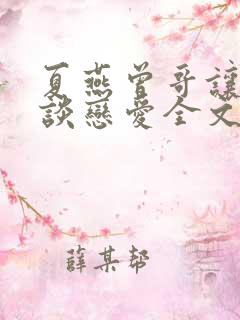 夏燕曾哥讓
談戀愛全文
薛某幫